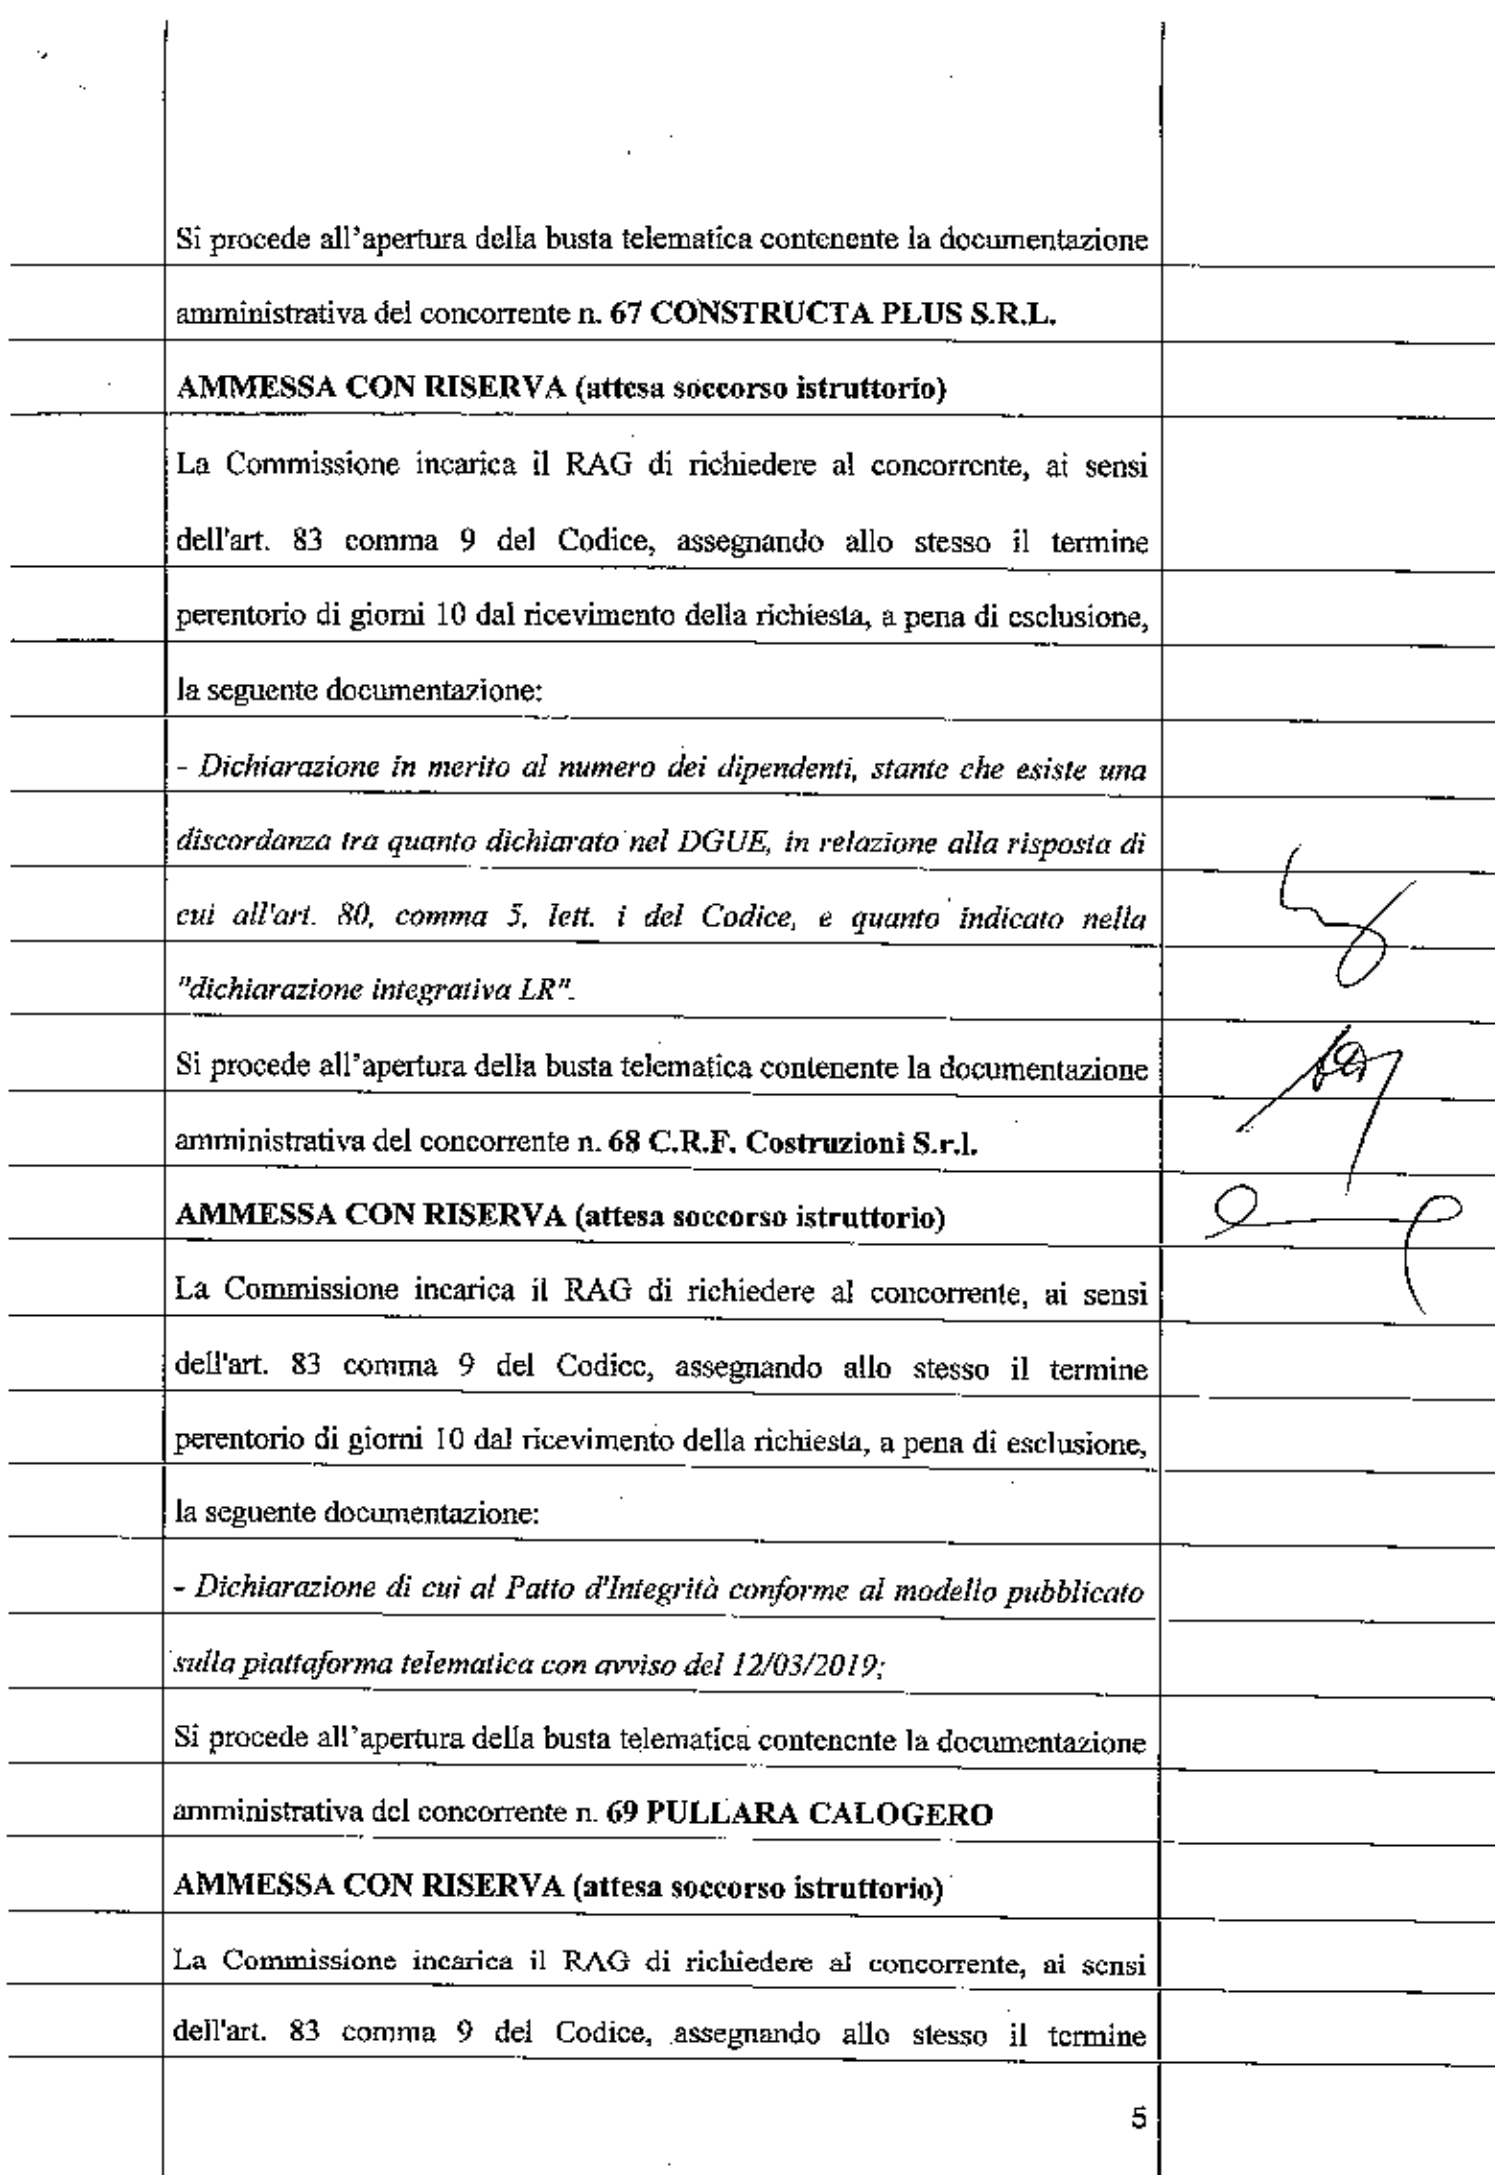 Si procede all'apertura della busta telematica contenente la documentazione
amministrativa del concorrente n. 67 CONSTRUCTA PLUS S.R.L.
AMMESSA CON RISERVA (attesa soccorso istruttorio)
La Commissione incarica il RAG di richiedere al concorrente, ai sensi
dell'art. 83 comma 9 del Codice, assegnando allo stesso il termine
perentorio di giorni 10 dal ricevimento della richiesta, a pena di esclusione,
la seguente documentazione:
- Dichiarazione in merito al numero dei dipendenti, stante che esiste una
discordanza tra quanto dichiarato nel DGUE, in relazione alla risposta di
cui all'art. 80, comma 5, lett. i del Codice, e quanto indicato nella
"dichiarazione integrativa LR".
Si procede all'apertura della busta telematica contenente la documentazione
amministrativa del concorrente n. 68 C.R.F. Costruzioni S.r.l.
AMMESSA CON RISERVA (attesa soccorso istruttorio)
La Commissione incarica il RAG di richiedere al concorrente, ai sensi
dell'art. 83 comma 9 del Codice, assegnando allo stesso il termine
perentorio di giorni 10 dal ricevimento della richiesta, a pena di esclusione,
la seguente documentazione:
- Dichiarazione di cui al Patto d'Integrità conforme al modello pubblicato
sulla piattaforma telematica con avviso del 12/03/2019;
Si procede all'apertura della busta telematica contenente la documentazione
amministrativa del concorrente n. 69 PULLARA CALOGERO
AMMESSA CON RISERVA (attesa soccorso istruttorio)
La Commissione incarica il RAG di richiedere al concorrente, ai sensi
dell'art. 83 comma 9 del Codice, assegnando allo stesso il termine
5